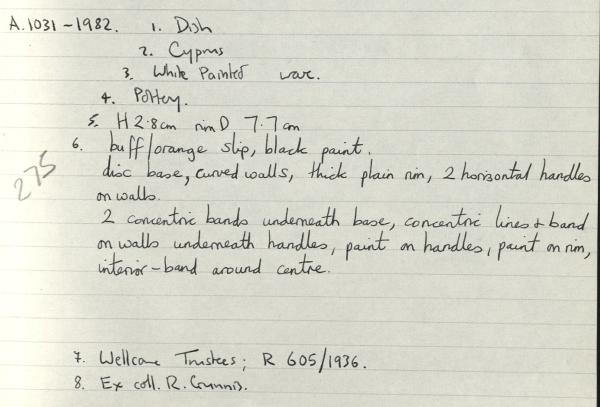 A.1031-1982. 1. Dish
2. Cyprus
3. White Painted ware.
4. Pottery.
5. H 2.8cm rim D 7.7cm
6. buff/orange slip, black paint.
disc base, curved walls, thick plain rim, 2 horizontal handles
on walls.
275
2 concentric bands underneath base, concentric lines & band
on walls underneath handles, paint on handles, paint on rim,
interior - band around centre.
7. Wellcome Trustees; R 605/1936.
8. Ex coll. R. Gunnis.